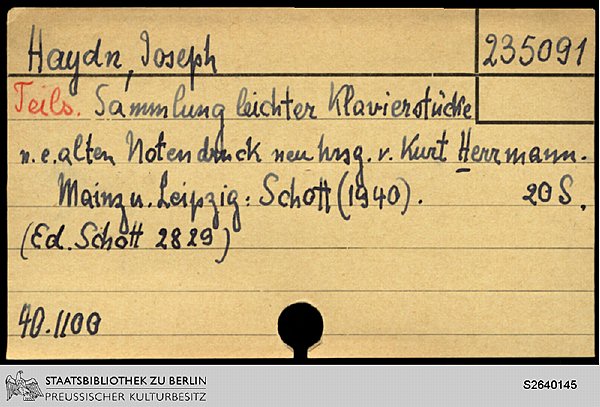 Haydn, Joseph
235091
Teils. Sammlung leichter Klavierstücke
n. e. alten Notendruck neu hrsg. v. Kurt Herrmann.
Mainz u. Leipzig: Schott (1940). 20 S.
(Ed. Schott 2829)
40.1100
STAATSBIBLIOTHEK ZU BERLIN
PREUSSISCHER KULTURBESITZ
S2640145